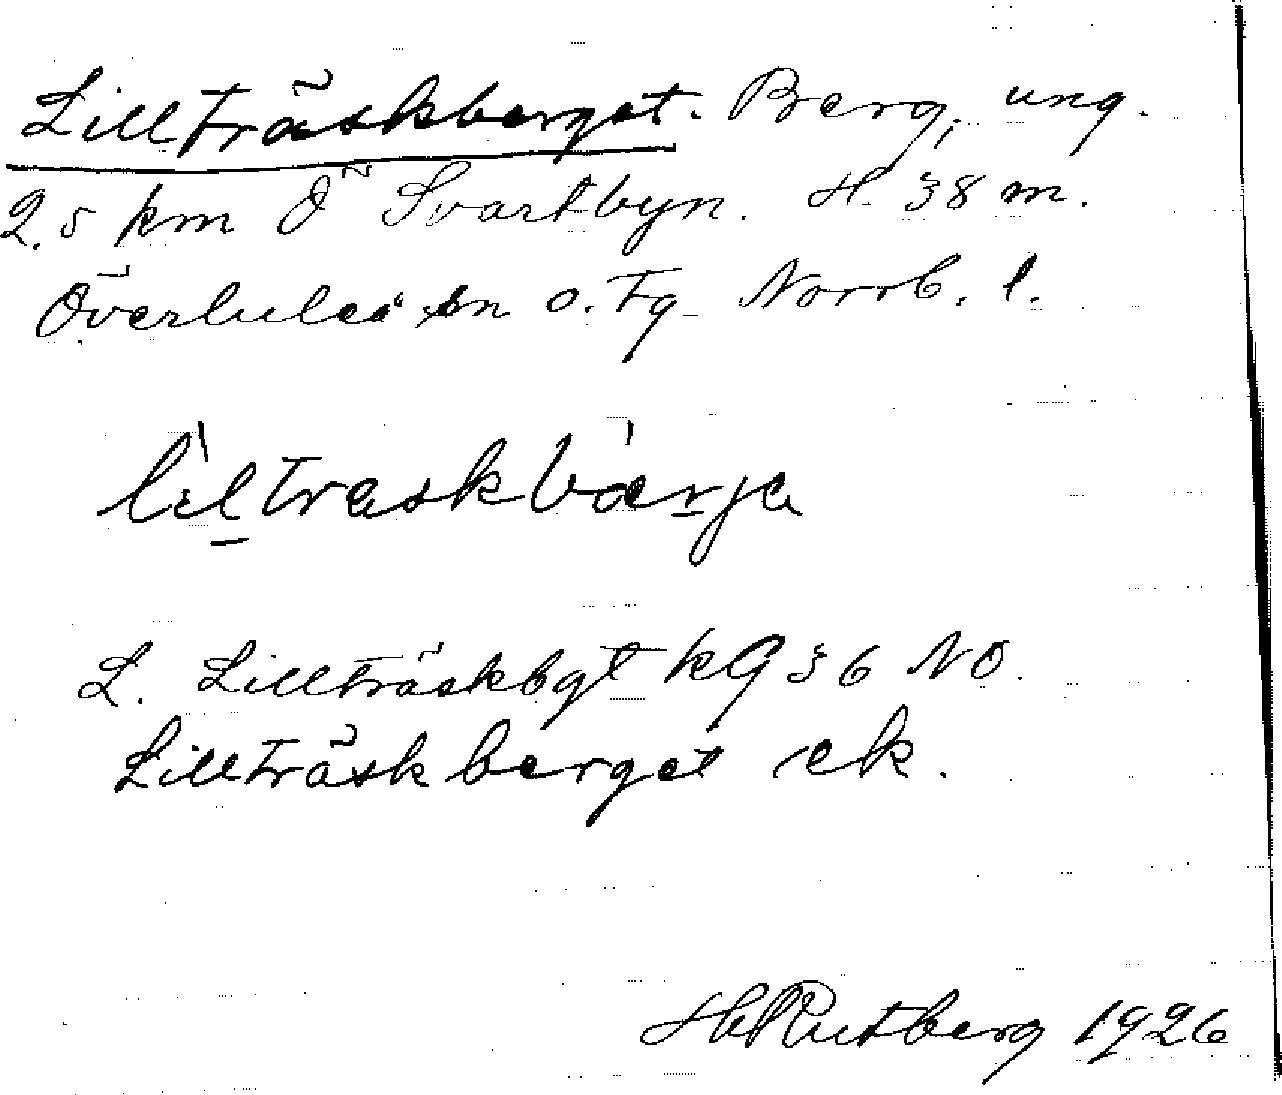 Lillträskberget. Berg, ung.
2.5 km Ö Svartbyn. H. 38 m.
Överluleå sn o. Tg Norrb. l.
lìltraskbàrja
L. Lillträskbgt kG 36 NO.
Lillträskberget ek.
H Rutberg 1926